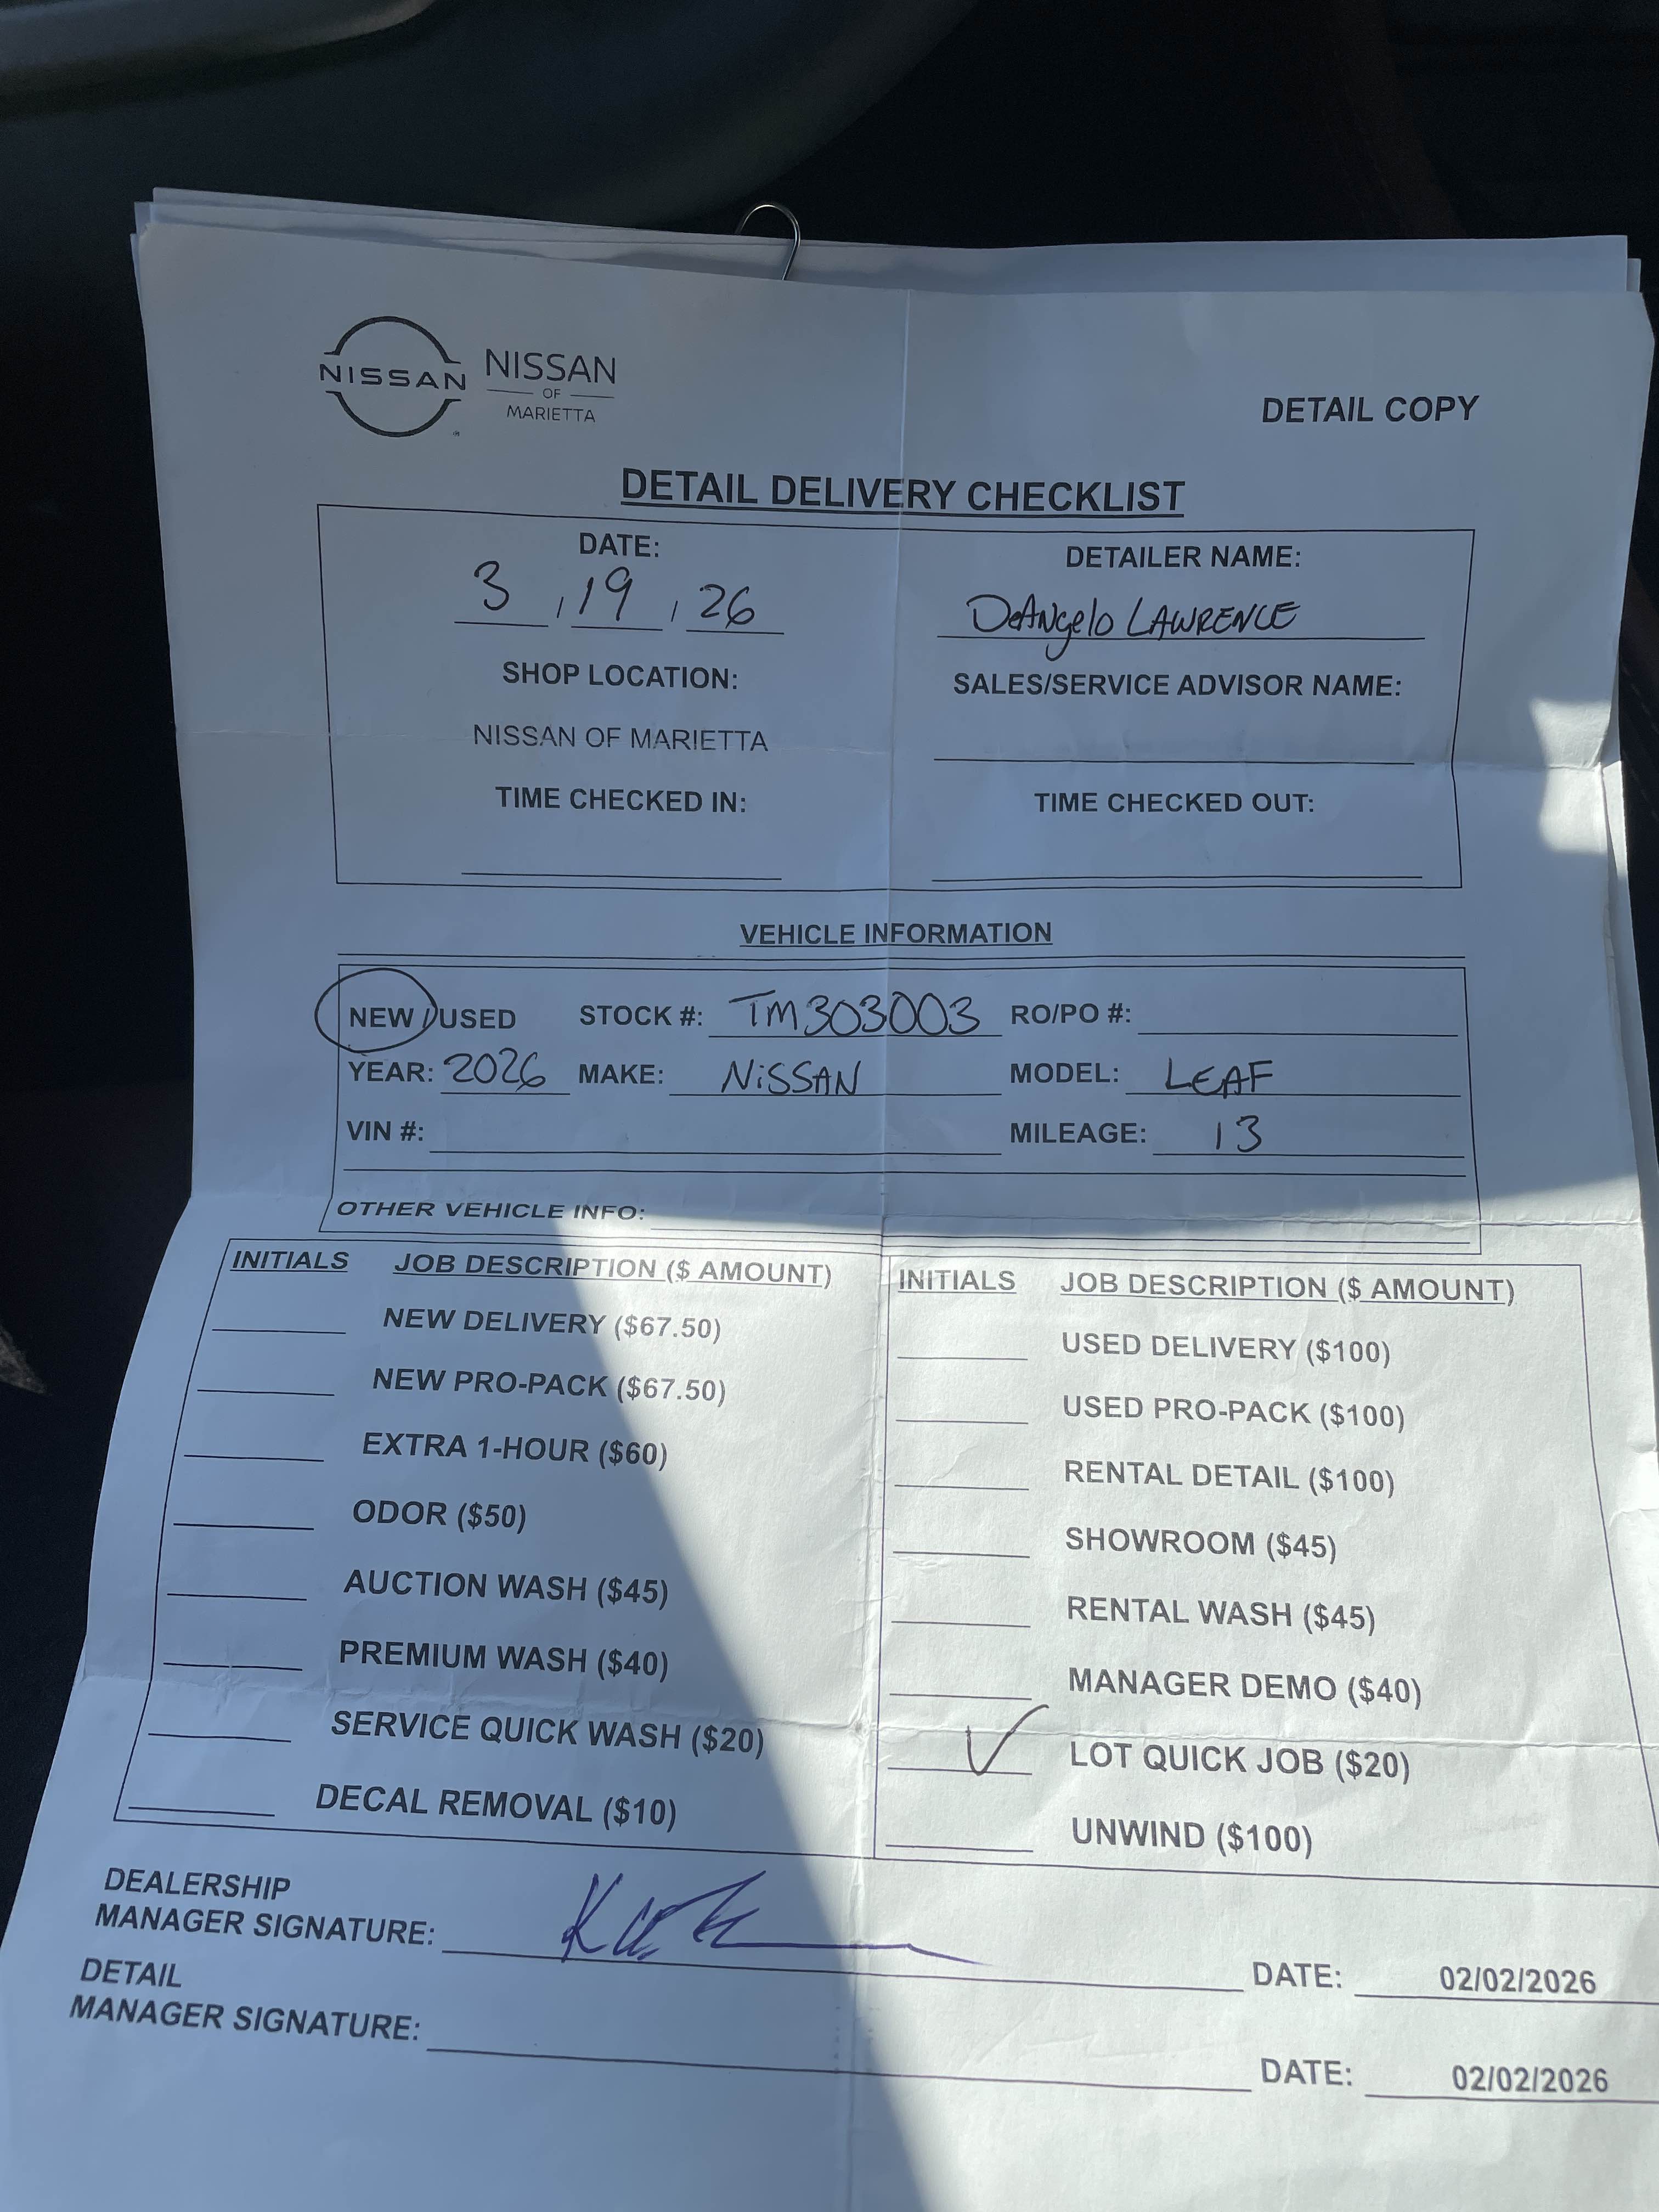 NISSAN
NISSAN
OF
MARIETTA
DETAIL COPY
DETAIL DELIVERY CHECKLIST
DATE:
3 / 19 / 26
DETAILER NAME:
DeAngelo LAWRENCE
SHOP LOCATION:
NISSAN OF MARIETTA
SALES/SERVICE ADVISOR NAME:
TIME CHECKED IN:
TIME CHECKED OUT:
VEHICLE INFORMATION
NEW / USED STOCK #: TM303003 RO/PO #:
YEAR: 2026 MAKE: NiSSAN MODEL: LEAF
VIN #: MILEAGE: 13
OTHER VEHICLE INFO:
INITIALS JOB DESCRIPTION ($ AMOUNT)
NEW DELIVERY ($67.50)
NEW PRO-PACK ($67.50)
EXTRA 1-HOUR ($60)
ODOR ($50)
AUCTION WASH ($45)
PREMIUM WASH ($40)
SERVICE QUICK WASH ($20)
DECAL REMOVAL ($10)
INITIALS JOB DESCRIPTION ($ AMOUNT)
USED DELIVERY ($100)
USED PRO-PACK ($100)
RENTAL DETAIL ($100)
SHOWROOM ($45)
RENTAL WASH ($45)
MANAGER DEMO ($40)
✓ LOT QUICK JOB ($20)
UNWIND ($100)
DEALERSHIP
MANAGER SIGNATURE:
DATE: 02/02/2026
DETAIL
MANAGER SIGNATURE:
DATE: 02/02/2026